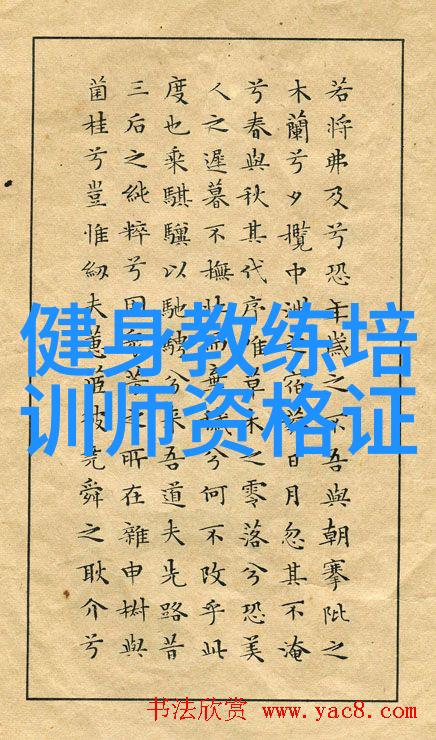 若將弗及兮恐年歲之不吾與朝搴阰之
木蘭兮夕攬中洲之宿莽日月忽其不淹
兮春與秋其代序唯草木之零落兮恐美
人之遲暮不撫壯而棄穢兮何不改乎此
度也乘騏驥以馳騁兮來吾道夫先路昔
三后之純粹兮固衆芳之所在雜申椒與
菌桂兮豈惟紉夫蕙茝彼堯舜之耿介兮
健身教练培
训师资格证
书法欣赏 www.yac8.com